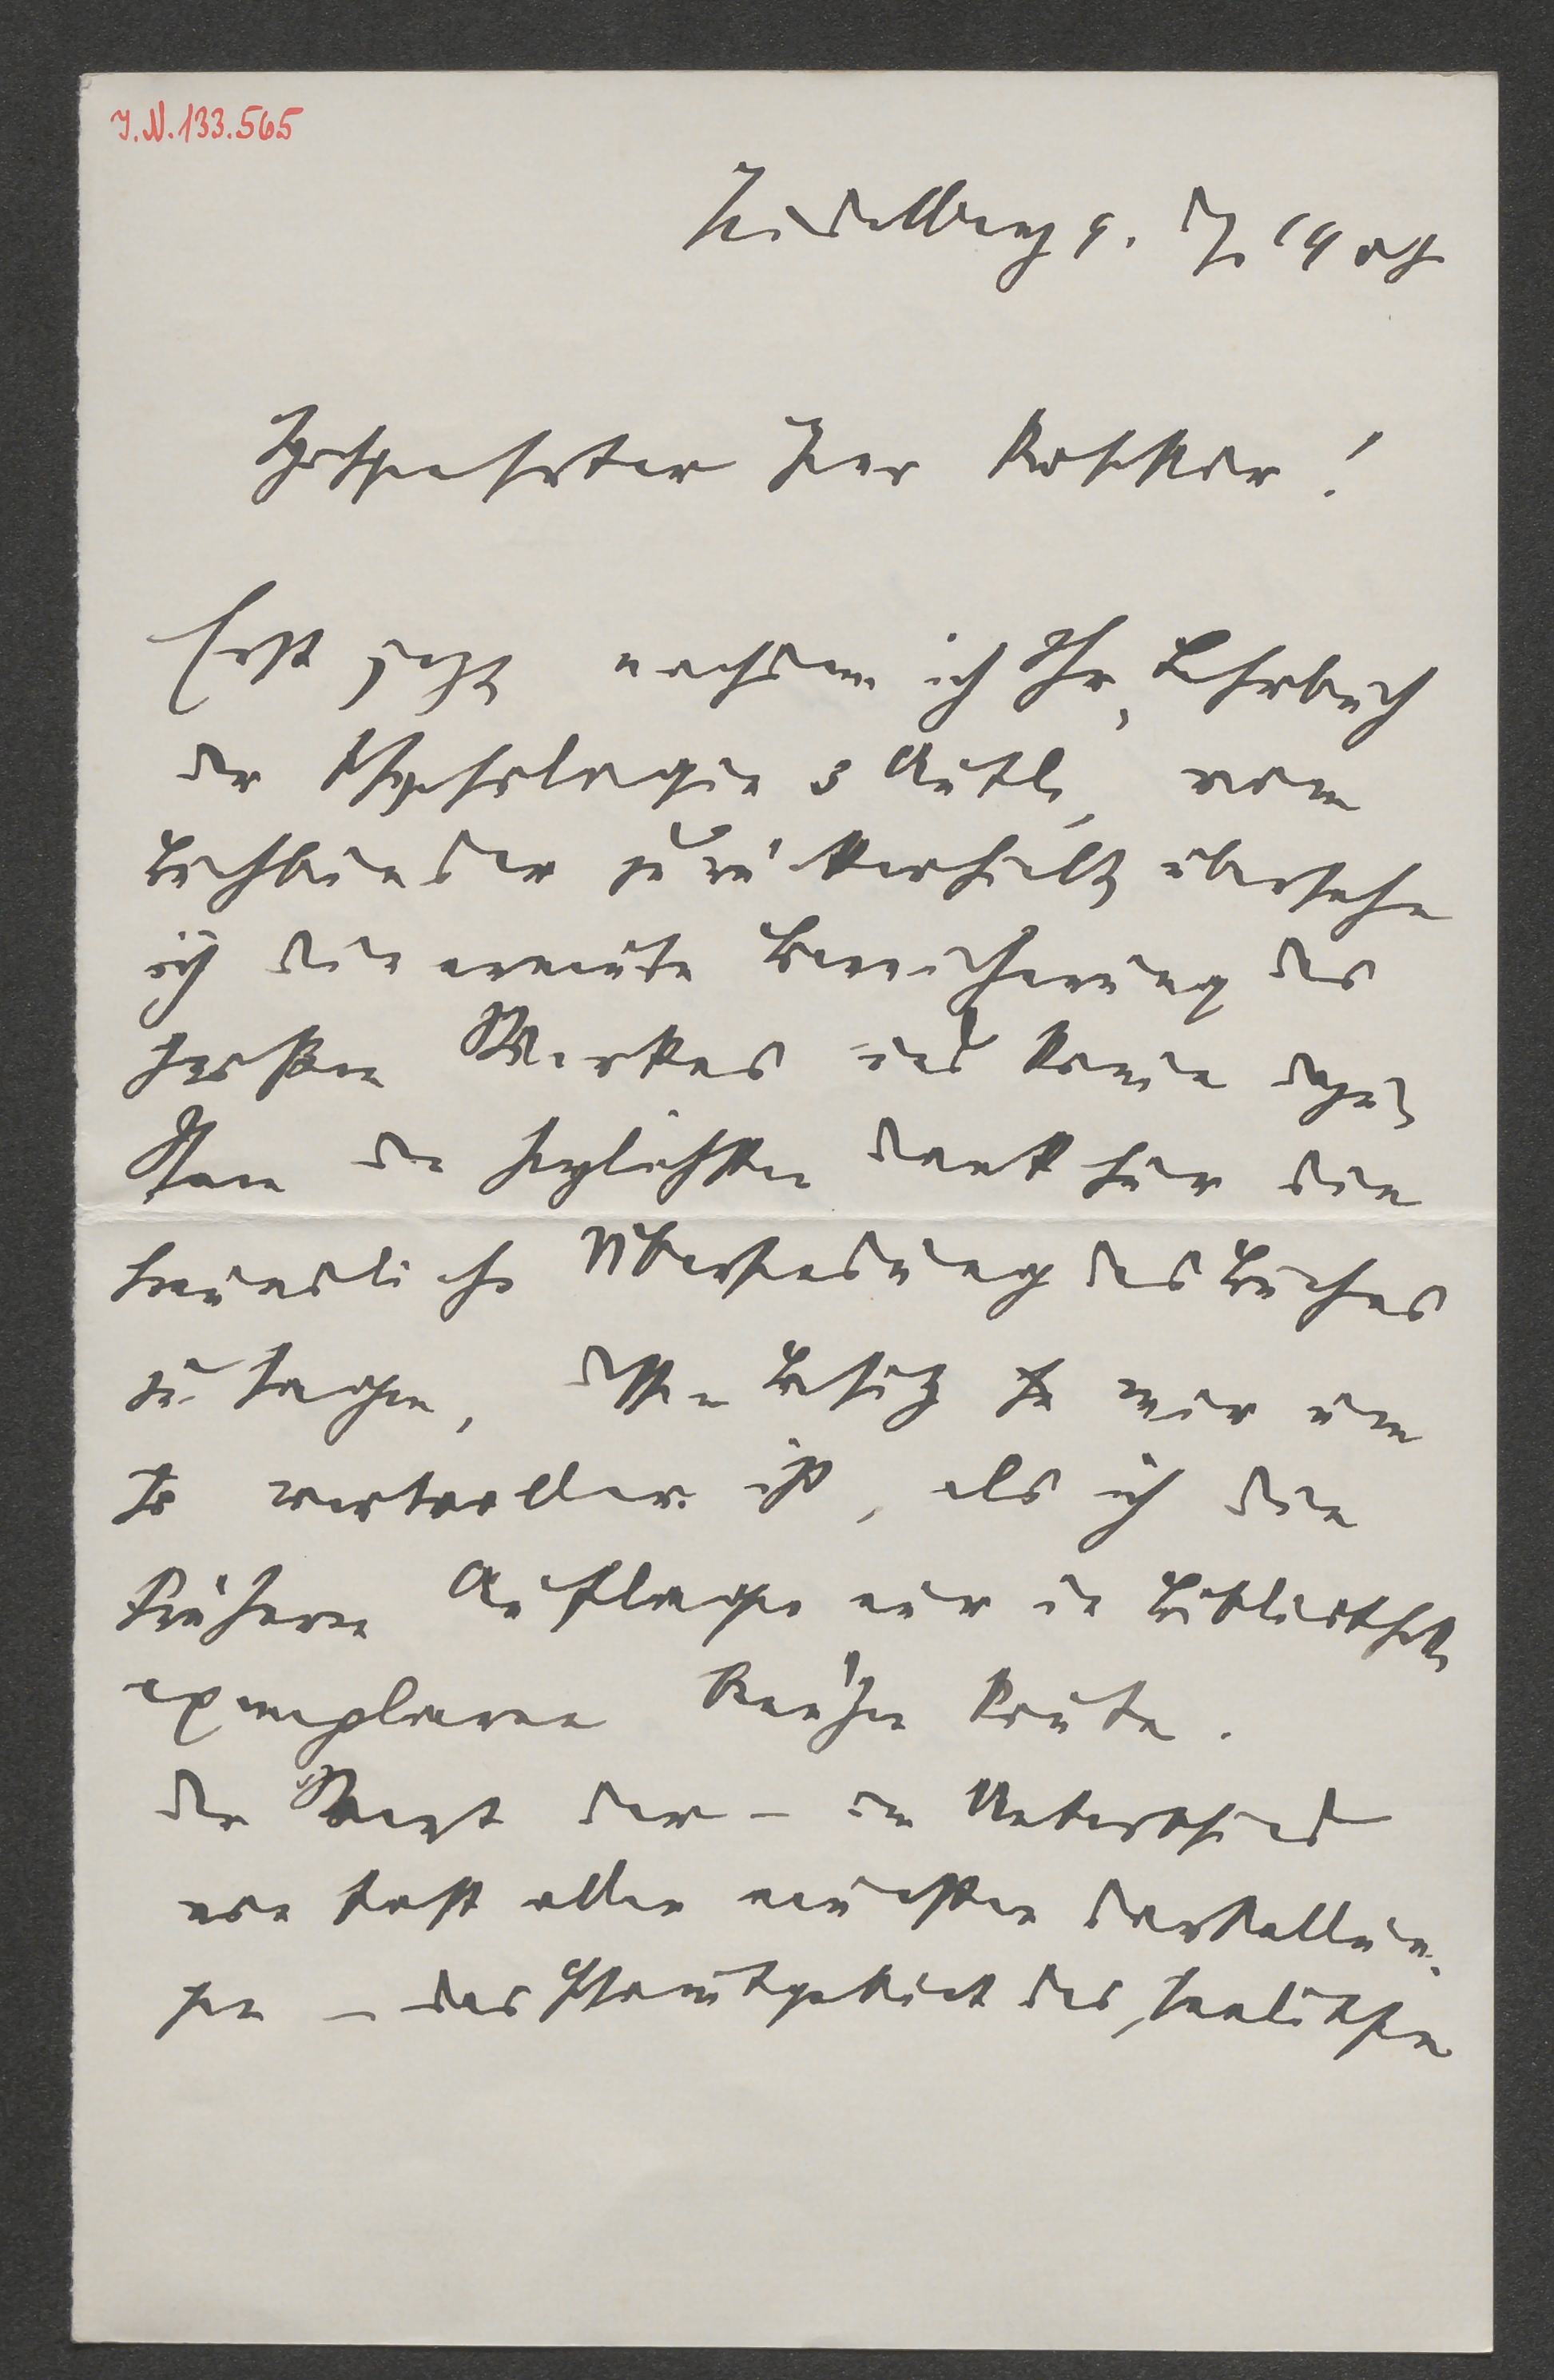 J.N. 133.565
Heidelberg 9. Dz. 1908
Hochgeehrter Herr Doktor!
Erst jetzt nachdem ich Ihr „Lehrbuch
der Psychologie 3 Aufl.“ vom
Buchbinder zurückerhielt übersehe
ich die erneute Bereicherung des
großen Werkes und komme dazu
Ihnen den herzlichsten Dank für die
freundliche Übersendung des Buches
zu sagen, dessen Besitz mir um
so wertvoller ist, als ich die
früheren Auflagen nur in Bibliotheks
exemplaren benutzen konnte.
Der der – im Unterschied
von fast allen neuesten Darstellun-
gen – das Hauptgebiet des „seelischen